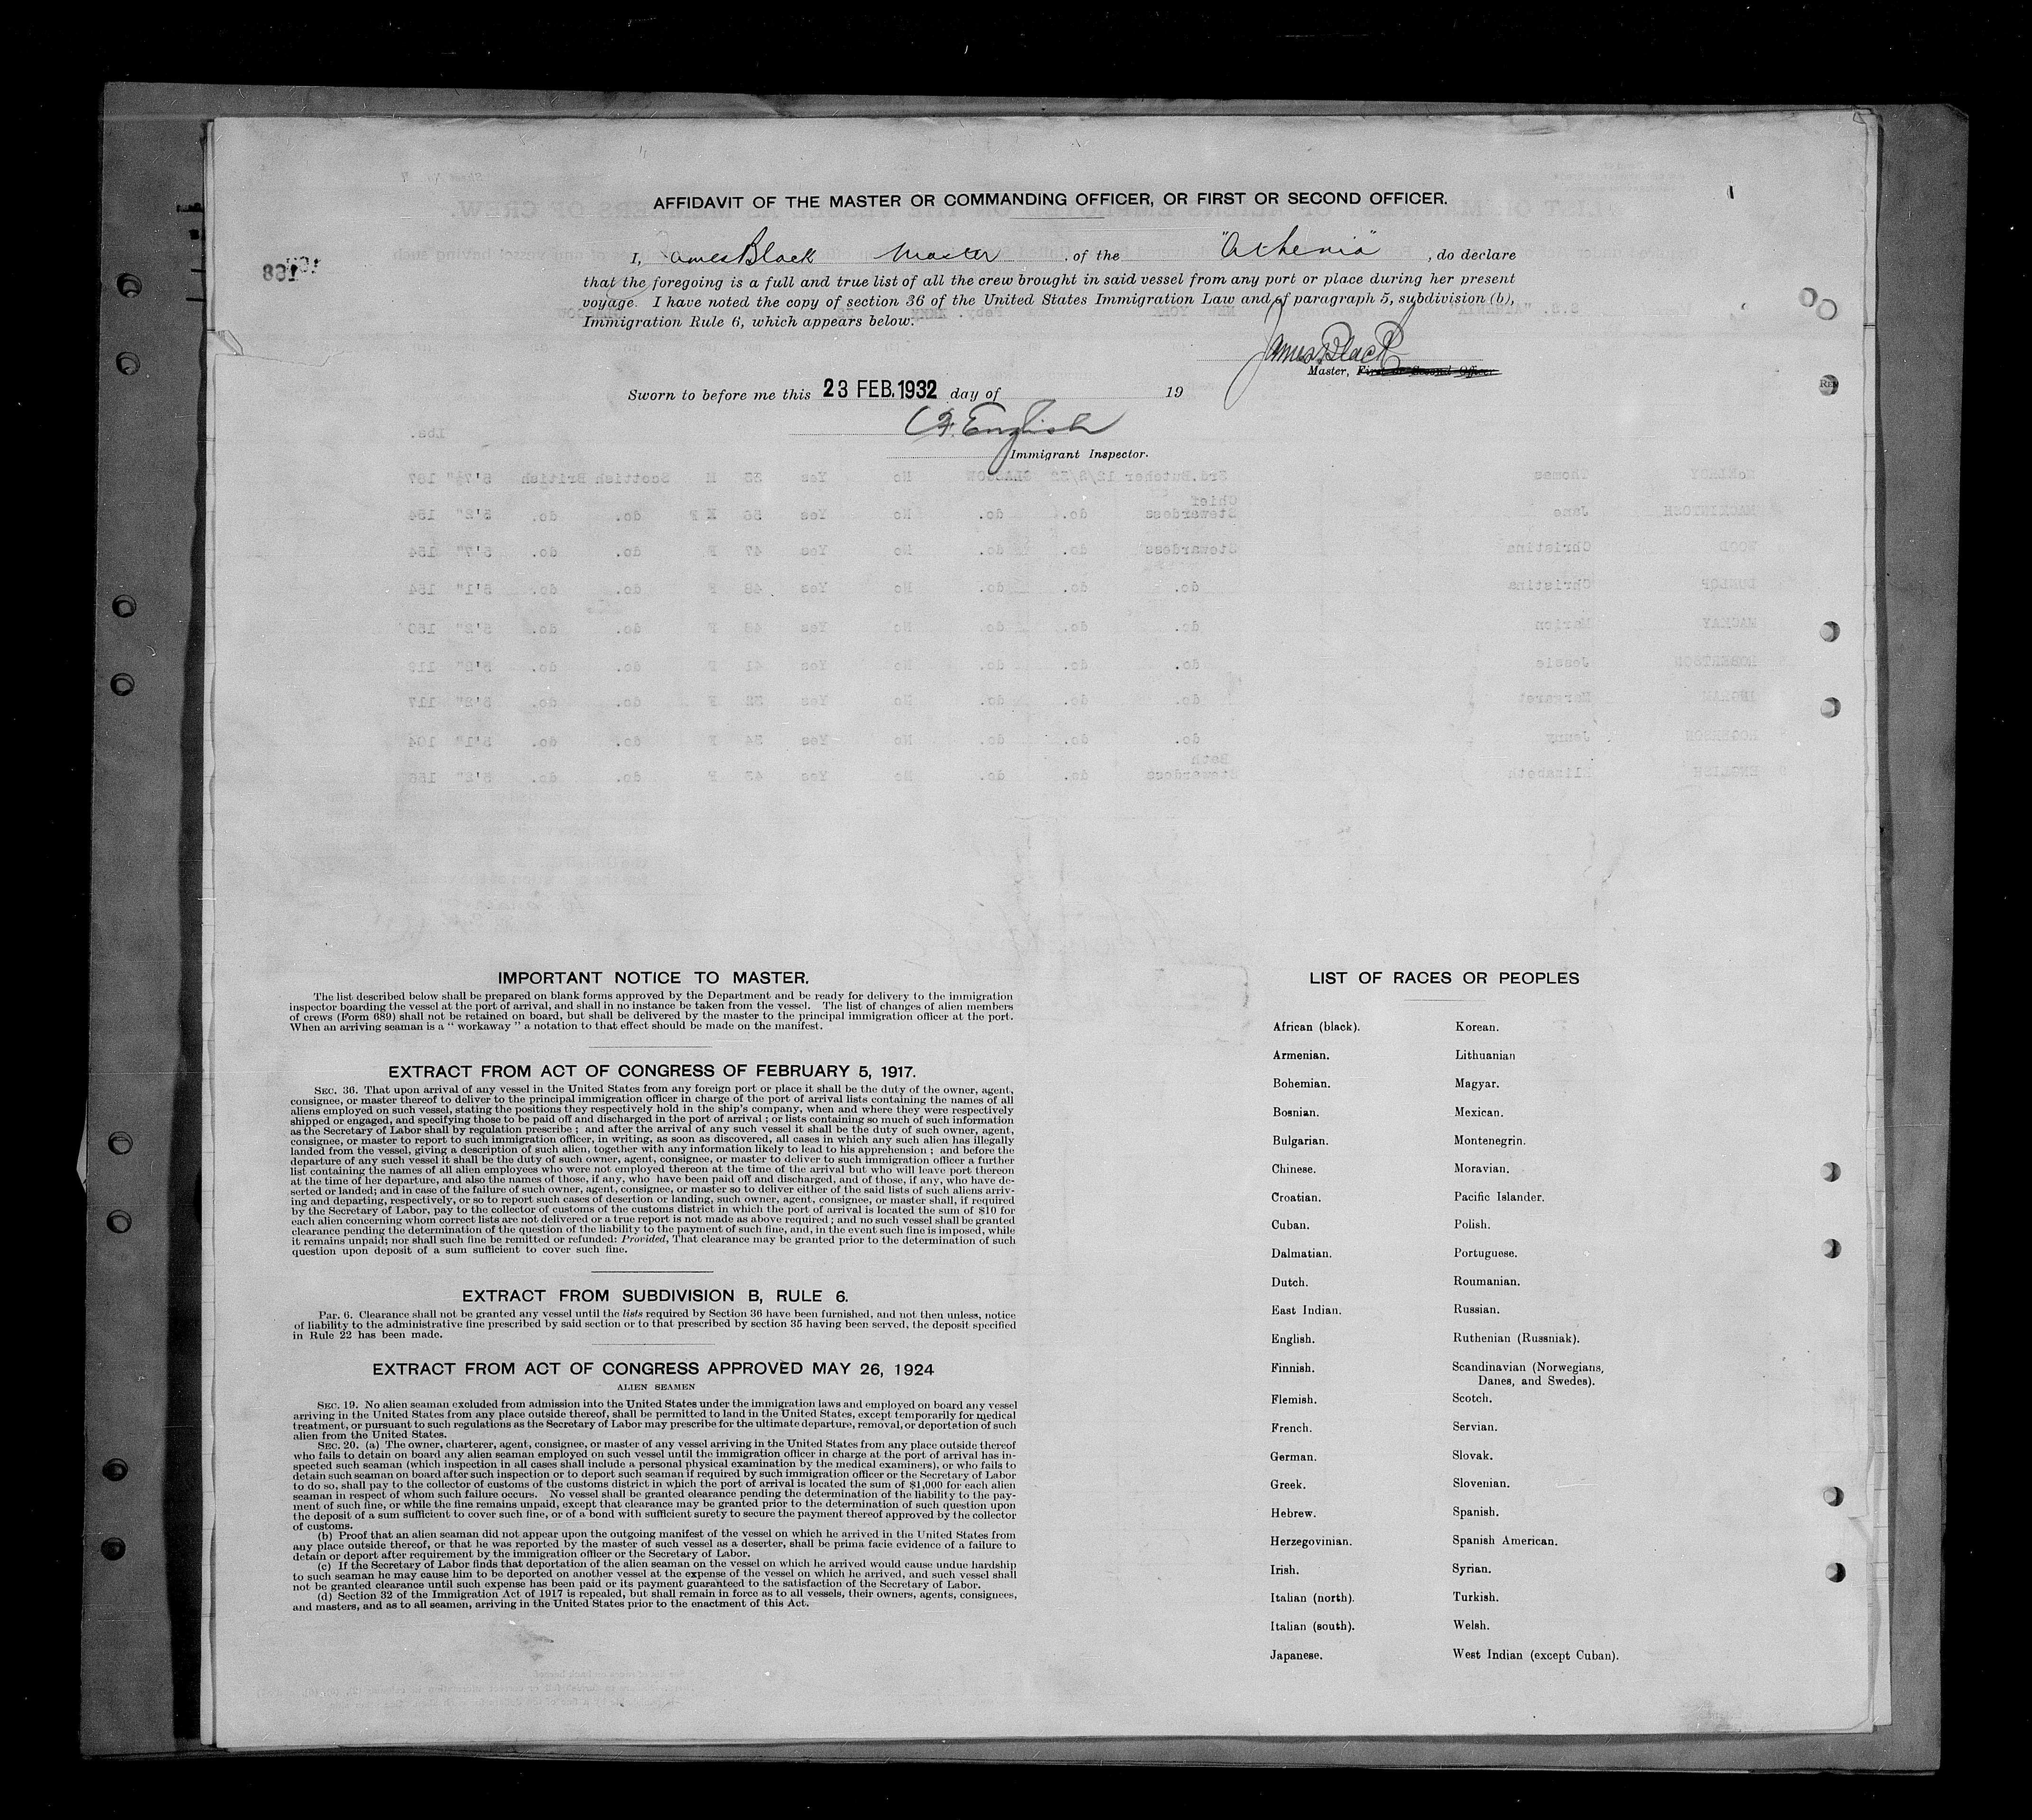 AFFIDAVIT OF THE MASTER OR COMMANDING OFFICER, OR FIRST OR SECOND OFFICER.
I, James Black Master of the "Athenia", do declare
that the foregoing is a full and true list of all the crew brought in said vessel from any port or place during her present
voyage. I have noted the copy of section 36 of the United States Immigration Law and of paragraph 5, subdivision (b),
Immigration Rule 6, which appears below.
James Black
Master, First or Second Officer
Sworn to before me this 23 FEB. 1932 day of 19
English
Immigrant Inspector.
IMPORTANT NOTICE TO MASTER.
The list described below shall be prepared on blank forms approved by the Department and be ready for delivery to the immigration
inspector boarding the vessel at the port of arrival, and shall in no instance be taken from the vessel. The list of changes of alien members
of crews (Form 689) shall not be retained on board, but shall be delivered by the master to the principal immigration officer at the port.
When an arriving seaman is a " workaway " a notation to that effect should be made on the manifest.
EXTRACT FROM ACT OF CONGRESS OF FEBRUARY 5, 1917.
SEC. 36. That upon arrival of any vessel in the United States from any foreign port or place it shall be the duty of the owner, agent,
consignee, or master thereof to deliver to the principal immigration officer in charge of the port of arrival lists containing the names of all
aliens employed on such vessel, stating the positions they respectively hold in the ship's company, when and where they were respectively
shipped or engaged, and specifying those to be paid off and discharged in the port of arrival ; or lists containing so much of such information
as the Secretary of Labor shall by regulation prescribe ; and after the arrival of any such vessel it shall be the duty of such owner, agent,
consignee, or master to report to such immigration officer, in writing, as soon as discovered, all cases in which any such alien has illegally
landed from the vessel, giving a description of such alien, together with any information likely to lead to his apprehension ; and before the
departure of any such vessel it shall be the duty of such owner, agent, consignee, or master to deliver to such immigration officer a further
list containing the names of all alien employees who were not employed thereon at the time of the arrival but who will leave port thereon
at the time of her departure, and also the names of those, if any, who have been paid off and discharged, and of those, if any, who have de-
serted or landed; and in case of the failure of such owner, agent, consignee, or master so to deliver either of the said lists of such aliens arriv-
ing and departing, respectively, or so to report such cases of desertion or landing, such owner, agent, consignee, or master shall, if required
by the Secretary of Labor, pay to the collector of customs of the customs district in which the port of arrival is located the sum of $10 for
each alien concerning whom correct lists are not delivered or a true report is not made as above required ; and no such vessel shall be granted
clearance pending the determination of the question of the liability to the payment of such fine, and, in the event such fine is imposed, while
it remains unpaid; nor shall such fine be remitted or refunded: Provided, That clearance may be granted prior to the determination of such
question upon deposit of a sum sufficient to cover such fine.
EXTRACT FROM SUBDIVISION B, RULE 6.
PAR. 6. Clearance shall not be granted any vessel until the lists required by Section 36 have been furnished, and not then unless, notice
of liability to the administrative fine prescribed by said section or to that prescribed by section 35 having been served, the deposit specified
in Rule 22 has been made.
EXTRACT FROM ACT OF CONGRESS APPROVED MAY 26, 1924
ALIEN SEAMEN
SEC. 19. No alien seaman excluded from admission into the United States under the immigration laws and employed on board any vessel
arriving in the United States from any place outside thereof, shall be permitted to land in the United States, except temporarily for medical
treatment, or pursuant to such regulations as the Secretary of Labor may prescribe for the ultimate departure, removal, or deportation of such
alien from the United States.
SEC. 20. (a) The owner, charterer, agent, consignee, or master of any vessel arriving in the United States from any place outside thereof
who fails to detain on board any alien seaman employed on such vessel until the immigration officer in charge at the port of arrival has in-
spected such seaman (which inspection in all cases shall include a personal physical examination by the medical examiners), or who fails to
detain such seaman on board after such inspection or to deport such seaman if required by such immigration officer or the Secretary of Labor
to do so, shall pay to the collector of customs of the customs district in which the port of arrival is located the sum of $1,000 for each alien
seaman in respect of whom such failure occurs. No vessel shall be granted clearance pending the determination of the liability to the pay-
ment of such fine, or while the fine remains unpaid, except that clearance may be granted prior to the determination of such question upon
the deposit of a sum sufficient to cover such fine, or of a bond with sufficient surety to secure the payment thereof approved by the collector
of customs.
(b) Proof that an alien seaman did not appear upon the outgoing manifest of the vessel on which he arrived in the United States from
any place outside thereof, or that he was reported by the master of such vessel as a deserter, shall be prima facie evidence of a failure to
detain or deport after requirement by the immigration officer or the Secretary of Labor.
(c) If the Secretary of Labor finds that deportation of the alien seaman on the vessel on which he arrived would cause undue hardship
to such seaman he may cause him to be deported on another vessel at the expense of the vessel on which he arrived, and such vessel shall
not be granted clearance until such expense has been paid or its payment guaranteed to the satisfaction of the Secretary of Labor.
(d) Section 32 of the Immigration Act of 1917 is repealed, but shall remain in force as to all vessels, their owners, agents, consignees,
and masters, and as to all seamen, arriving in the United States prior to the enactment of this Act.
LIST OF RACES OR PEOPLES
African (black). Korean.
Armenian. Lithuanian
Bohemian. Magyar.
Bosnian. Mexican.
Bulgarian. Montenegrin.
Chinese. Moravian.
Croatian. Pacific Islander.
Cuban. Polish.
Dalmatian. Portuguese.
Dutch. Roumanian.
East Indian. Russian.
English. Ruthenian (Russniak).
Finnish. Scandinavian (Norwegians,
Danes, and Swedes).
Flemish. Scotch.
French. Servian.
German. Slovak.
Greek. Slovenian.
Hebrew. Spanish.
Herzegovinian. Spanish American.
Irish. Syrian.
Italian (north). Turkish.
Italian (south). Welsh.
Japanese. West Indian (except Cuban).